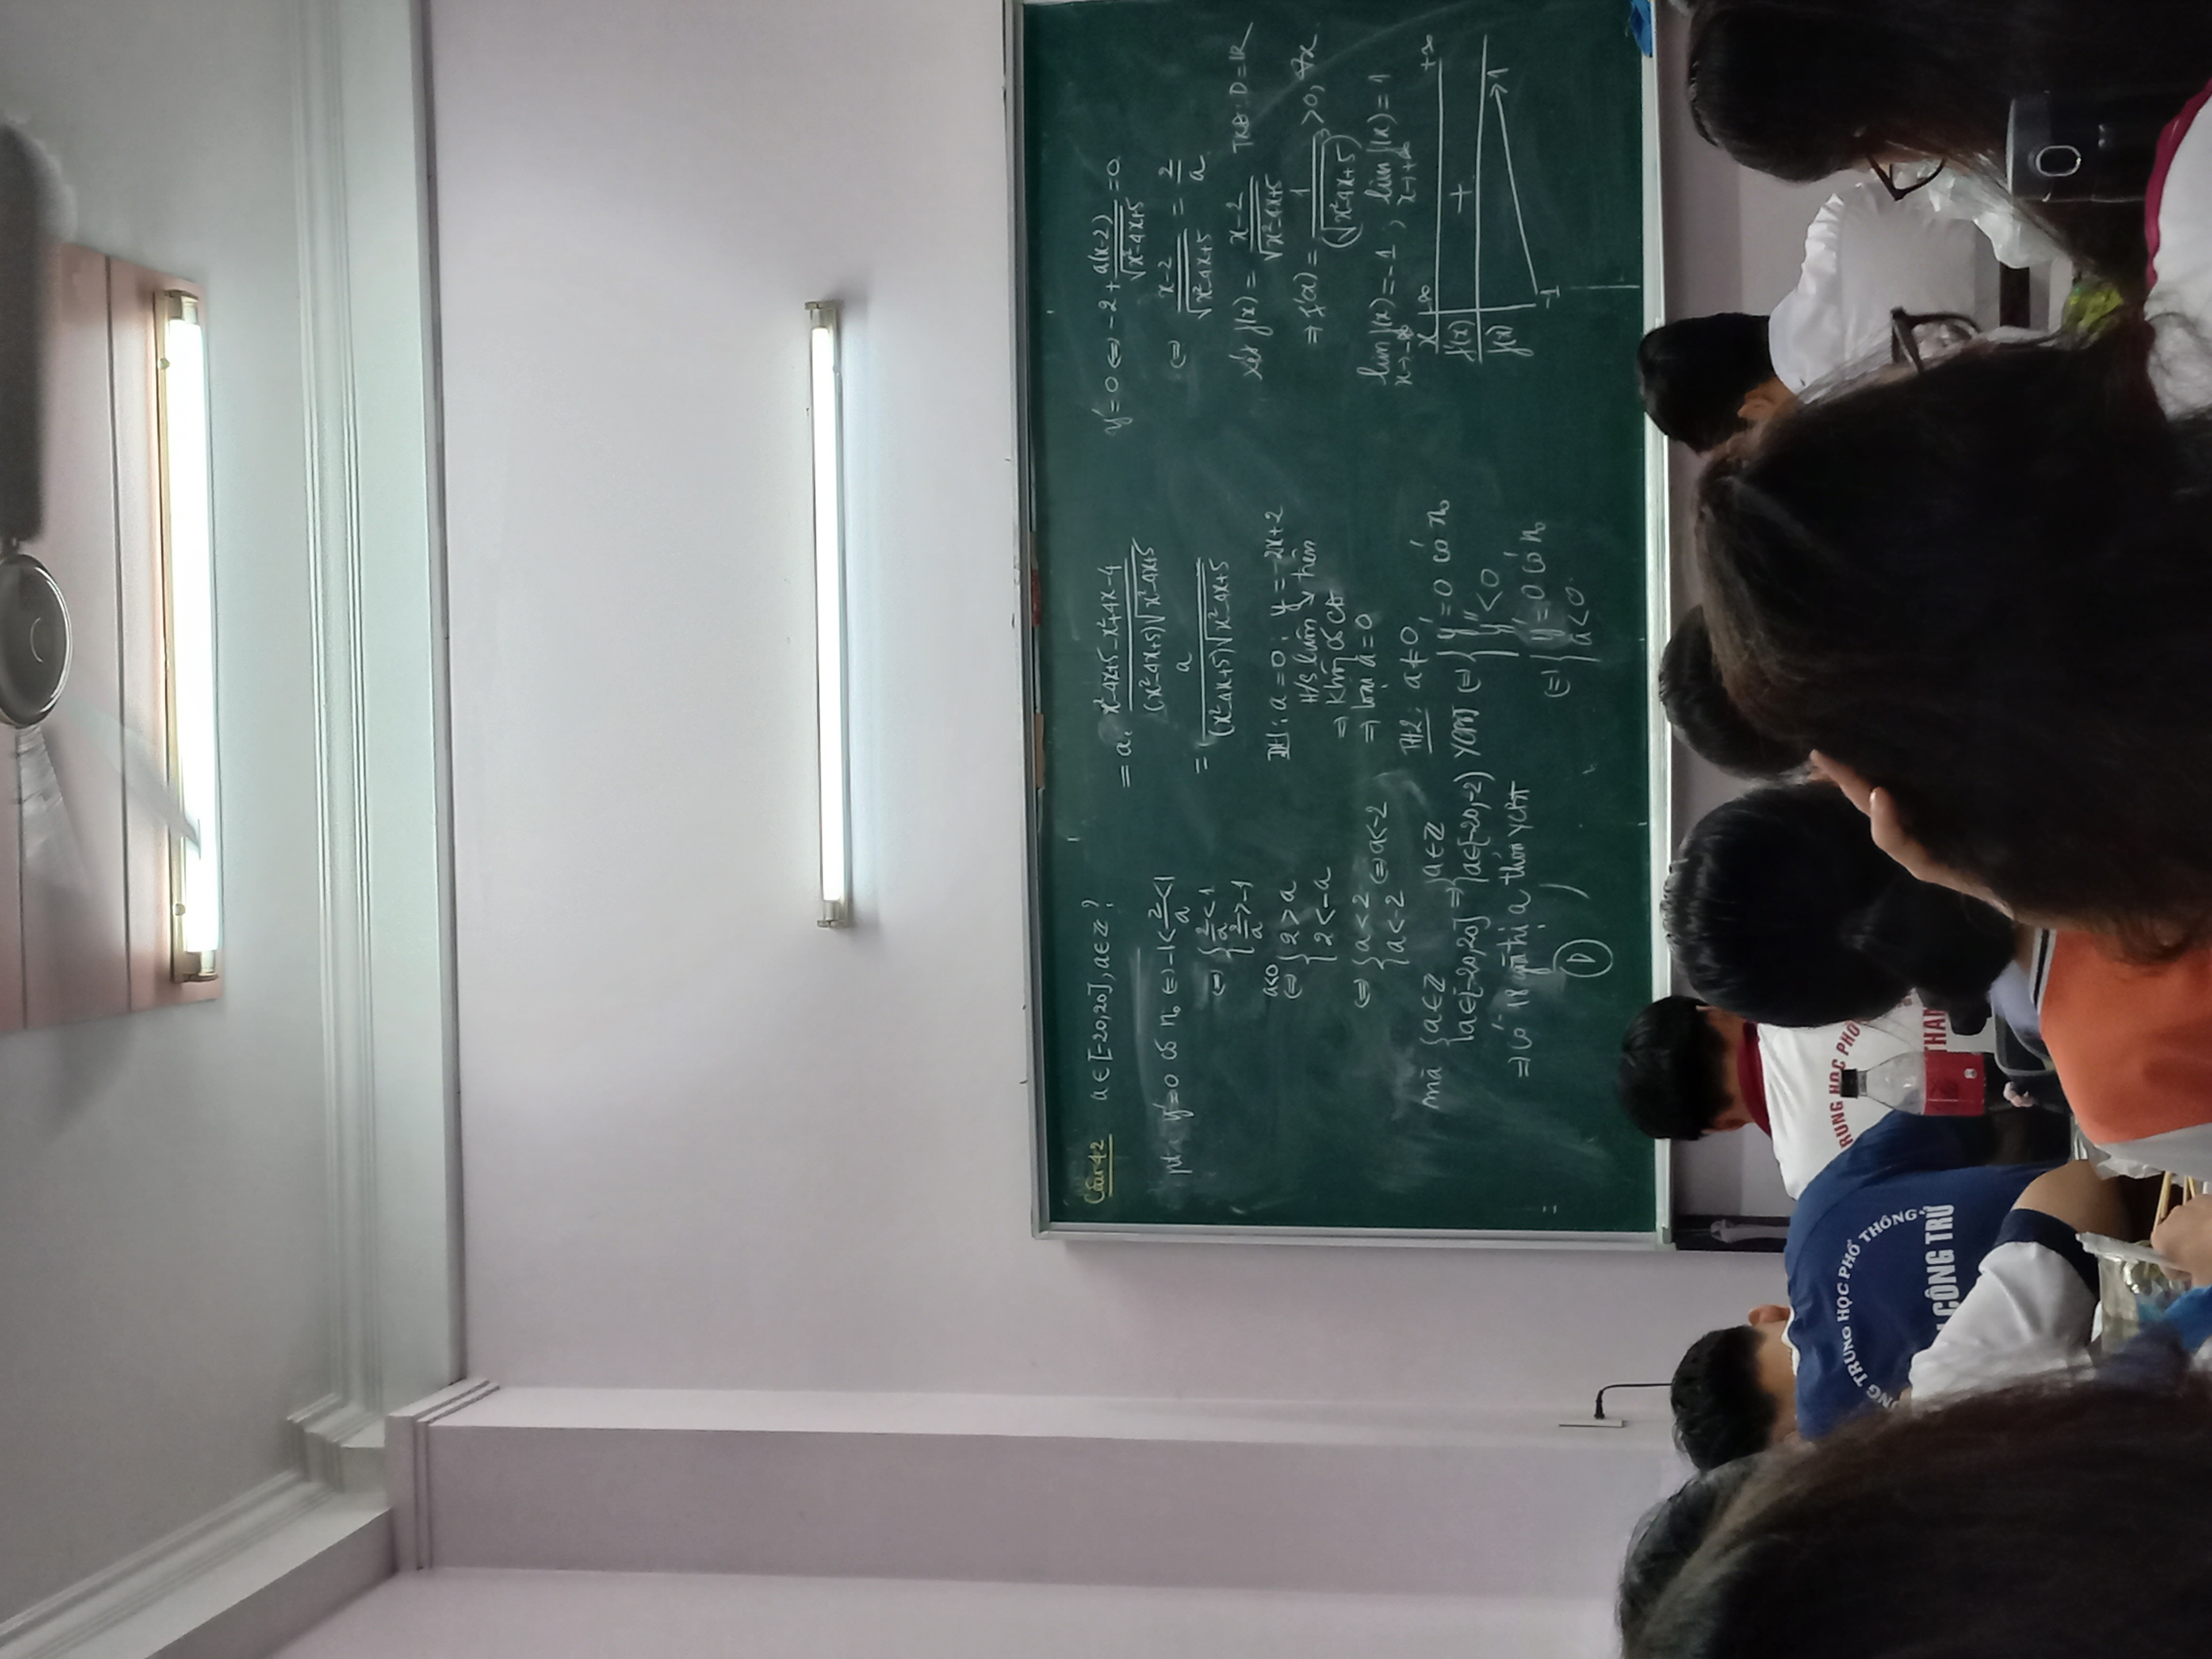 Câu 42 a ∈ [-20,20], a ∈ ℤ ?
pt y' = 0 có n₀ ⇔ -1 < 2/a < 1
⇔ { 2/a < 1
2/a > -1
a<0
⇔ { 2 > a
2 < -a
⇔ { a < 2
a < -2 ⇔ a < -2
mà { a ∈ ℤ
a ∈ [-20,20] ⇒ { a ∈ ℤ
a ∈ [-20,-2)
⇒ Có 18 giá trị a thỏa YCBT
D
= a. (x²-4x+5-x²+4x-4)/((x²-4x+5)√(x²-4x+5))
= a/((x²-4x+5)√(x²-4x+5))
TH1: a = 0: y = -2x+2
H/S luôn ↘ trên
⇒ Không có CĐ
⇒ loại a = 0
TH2: a ≠ 0
YCBT ⇔ { y' = 0 có n₀
y'' < 0
⇔ { y' = 0 có n₀
a < 0
y' = 0 ⇔ -2 + a(x-2)/√(x²-4x+5) = 0
⇔ (x-2)/√(x²-4x+5) = 2/a
Xét f(x) = (x-2)/√(x²-4x+5) TXĐ: D = ℝ
⇒ f'(x) = 1/(√(x²-4x+5))³ > 0, ∀x
lim f(x) = -1 , lim f(x) = 1
x→-∞ x→+∞
x -∞ +∞
f'(x) +
f(x) 1
-1
TRUNG HỌC PHỔ THÔNG
CÔNG TRỨ
RUNG HỌC PHỔ
THAN